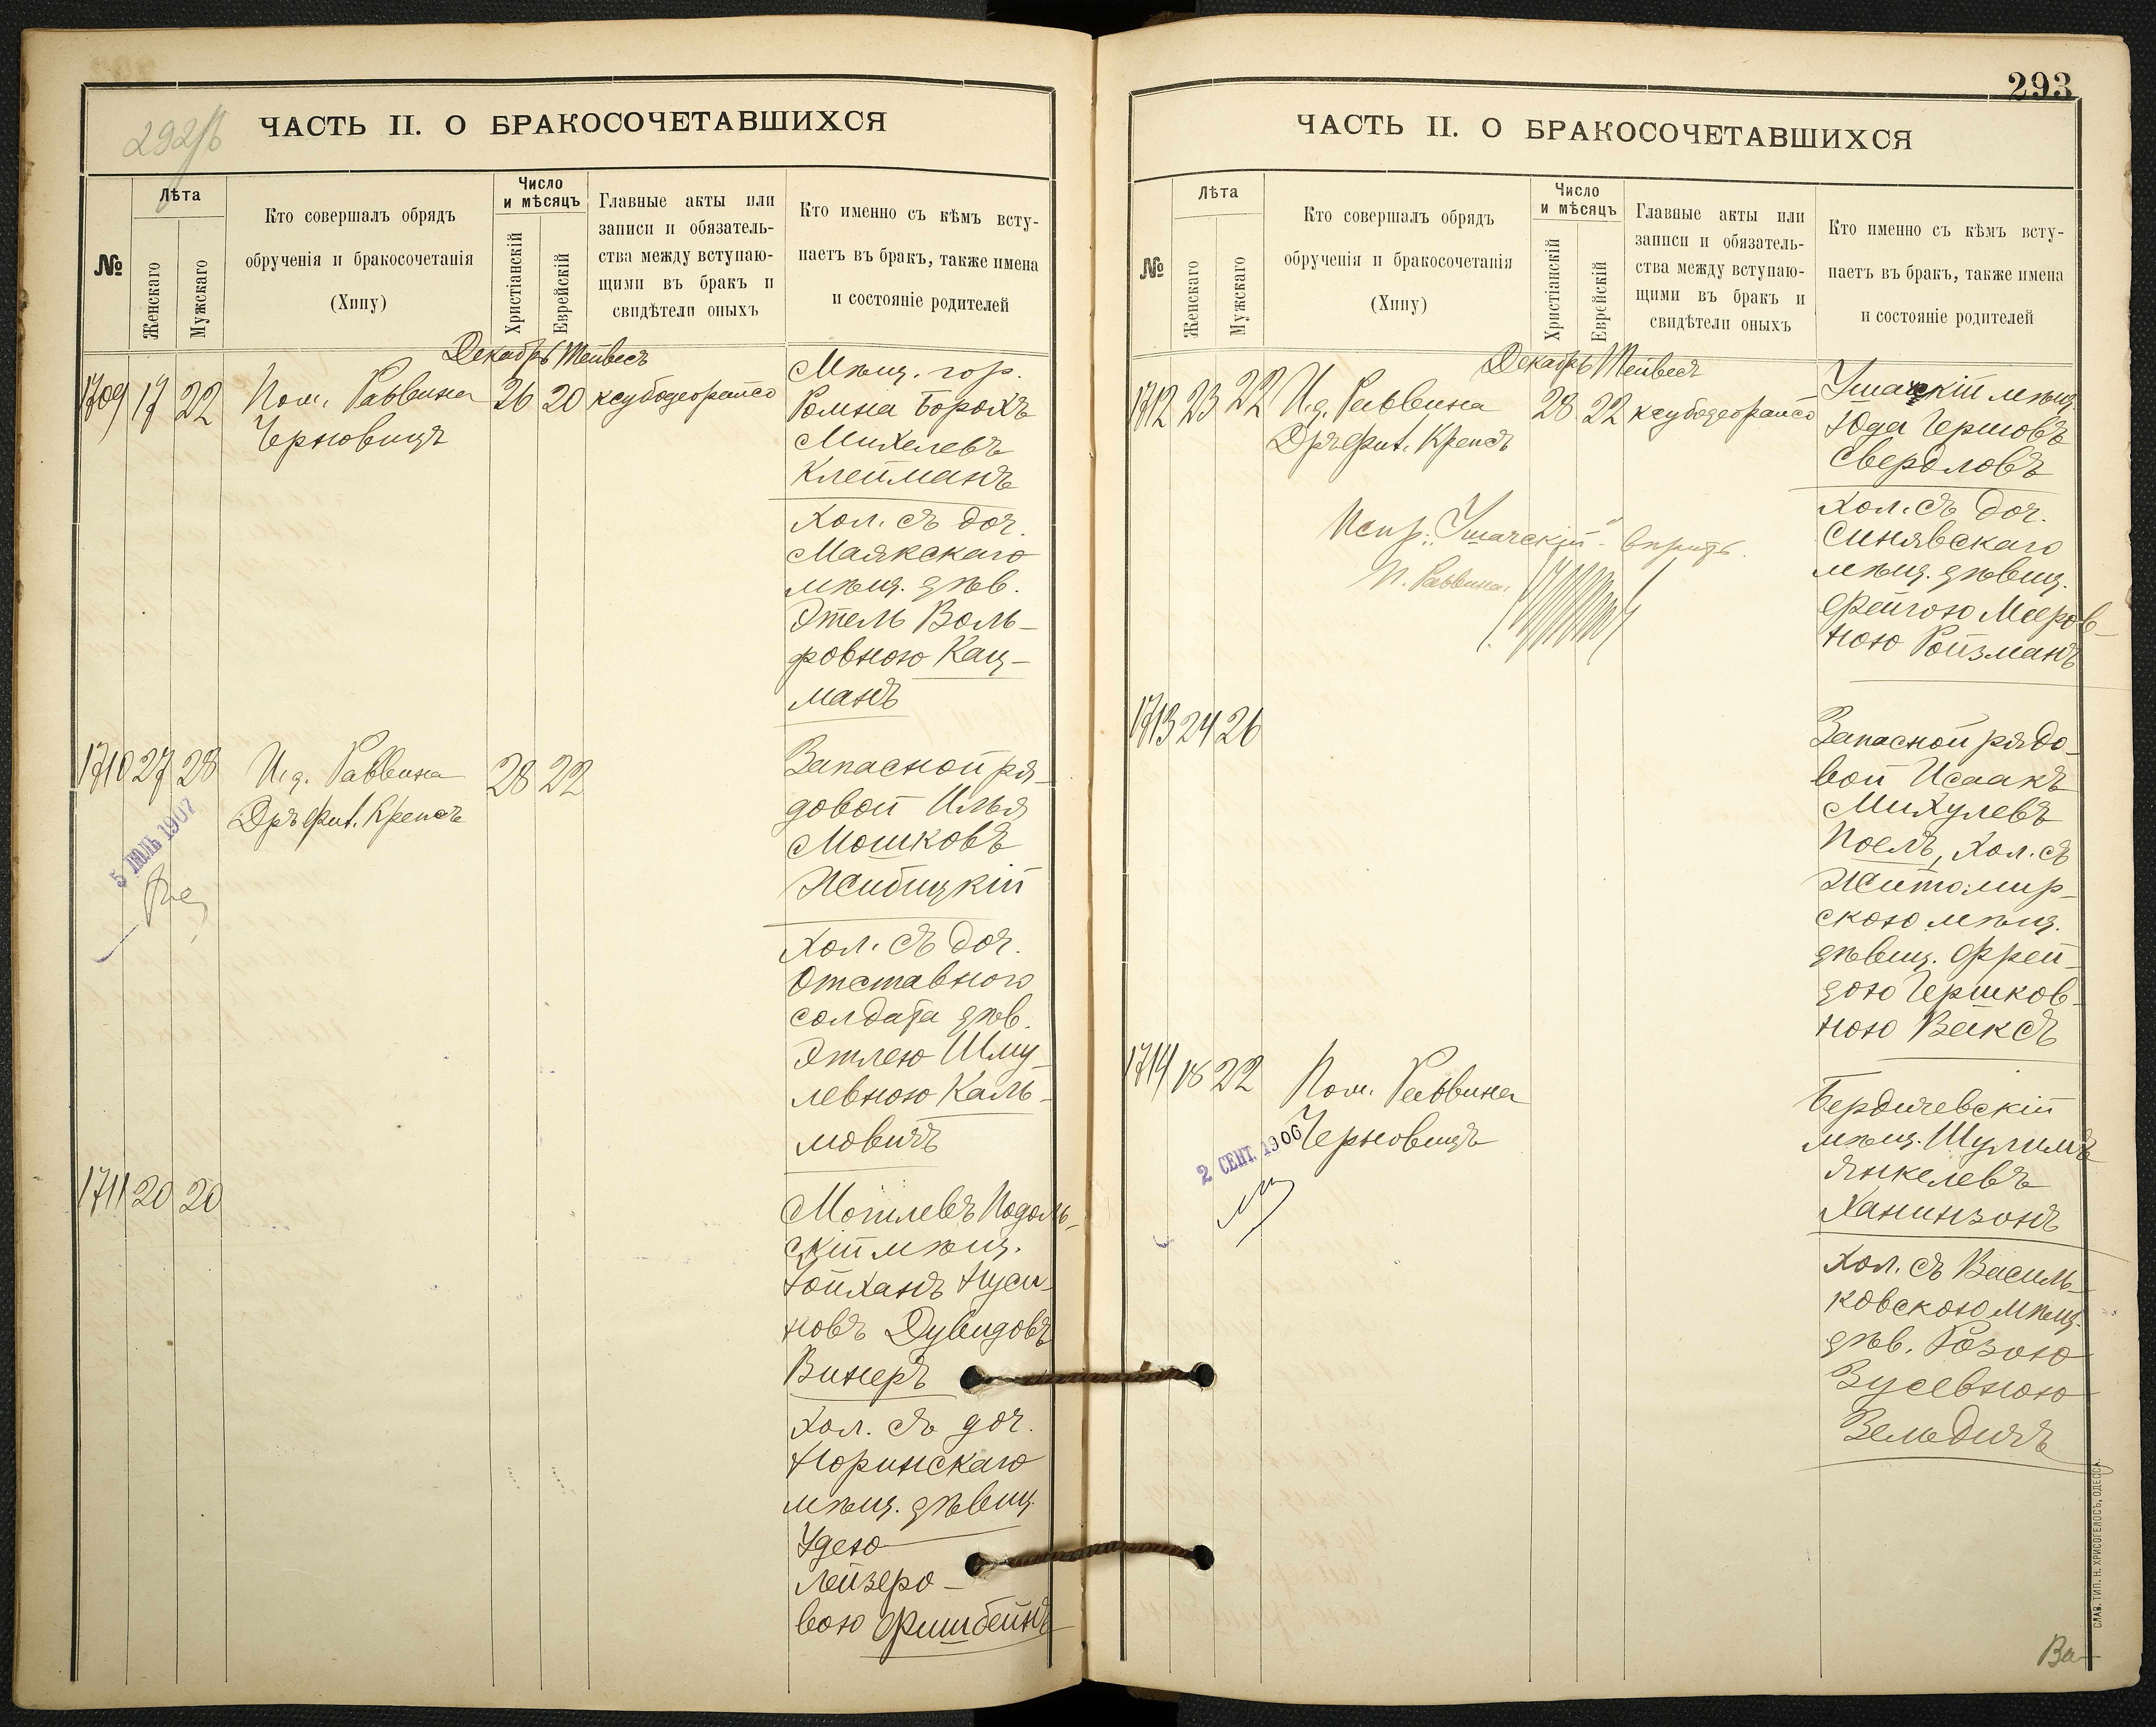 292/б
ЧАСТЬ II. О БРАКОСОЧЕТАВШИХСЯ
№
Лѣта
Женскаго
Мужскаго
Кто совершалъ обрядъ
обрученія и бракосочетанія
(Хипу)
Число
и мѣсяцъ
Христіанскій
Еврейскій
Главные акты или
записи и обязатель-
ства между вступаю-
щими въ бракъ и
свидѣтели оныхъ
Кто именно съ кѣмъ всту-
паетъ въ бракъ, также имена
и состояніе родителей
Декабрь Тейвесъ
1709 17 22 Пом. Раввина 26 20 ксубодеорайсо
Черновицъ
Мѣщ. гор.
Ромна Борохъ
Михелевъ
Клейманъ
Хол. съ доч.
Маякскаго
мѣщ. дѣв.
Этель Воль-
фовною Кац-
манъ
1710 27 28 И.д. Раввина 28 22
Дръ Фил. Крепсъ
5 ІЮЛЬ 1907
Запасной ря-
довой Илья
Мошковъ
Жибицкій
Хол. съ доч.
Отставного
солдата дѣв.
Этлею Шму-
левною Каль-
мовичъ
1711 20 20
Могилевъ Подоль-
скій мѣщ.
Нойханъ Нуси-
новъ Дувидовъ
Винеръ
Хол. съ доч.
Норинскаго
мѣщ. дѣвиц.
Удею
Лейзеро-
вою Фишбейнъ
293
ЧАСТЬ II. О БРАКОСОЧЕТАВШИХСЯ
№
Лѣта
Женскаго
Мужскаго
Кто совершалъ обрядъ
обрученія и бракосочетанія
(Хипу)
Число
и мѣсяцъ
Христіанскій
Еврейскій
Главные акты или
записи и обязатель-
ства между вступаю-
щими въ бракъ и
свидѣтели оныхъ
Кто именно съ кѣмъ всту-
паетъ въ бракъ, также имена
и состояніе родителей
Декабрь Тейвесъ
1712 23 22 И.д. Раввина 28 22 ксубодеорайсо
Дръ Фил. Крепсъ
Испр. "Ушачскій"
П. Раввина
Ушачскій мѣщ.
Юда Гершовъ
Свердловъ
Хол. съ доч.
Синявскаго
мѣщ. дѣвиц.
Фейгою Мееров-
ною Ройзманъ
1713 24 26
Запасной рядо-
вой Исаакъ
Михулевъ
Поелъ, Хол. съ
Житомир-
скою мѣщ.
дѣвиц. Фрей-
дою Гершков-
ною Вейксъ
1714 18 22 Пом. Раввина
Черновицъ
2 СЕНТ. 1906
Бердичевскій
мѣщ. Шулимъ
Янкелевъ
Ханинзонъ
Хол. съ Василь-
ковскою мѣщ.
дѣв. Розою
Зусевною
Зельдичъ
СЛАВ. ТИП. Н. ХРИСОГЕЛОСЪ, ОДЕССА.